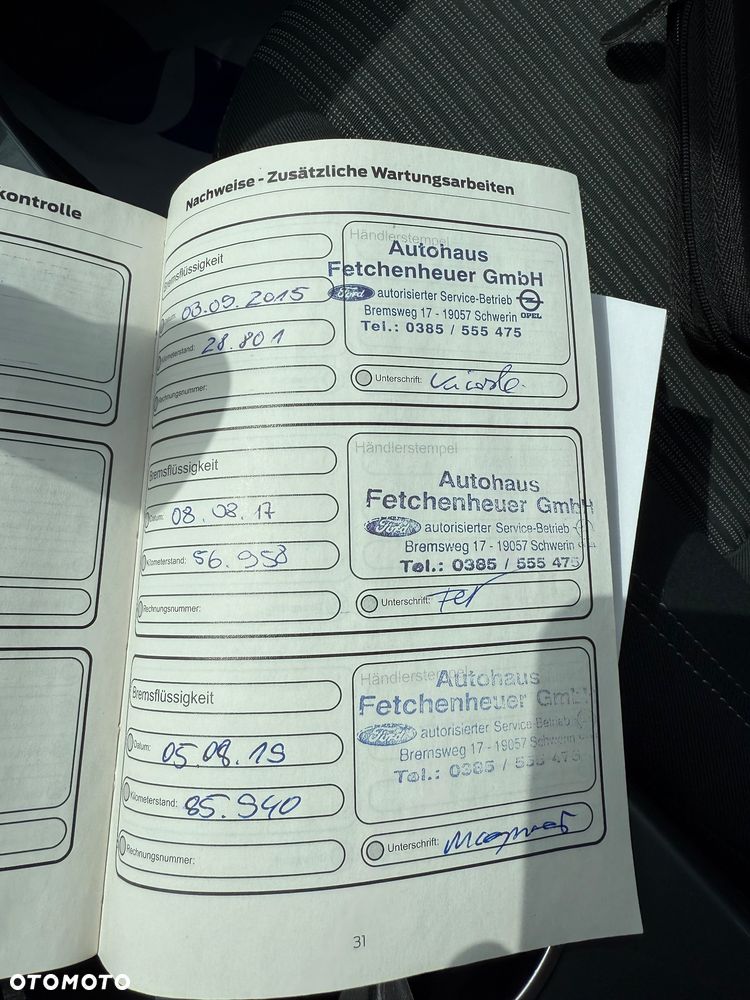 kontrolle
Nachweise - Zusätzliche Wartungsarbeiten
Bremsflüssigkeit
Datum: 03.09.2015
Kilometerstand: 28.801
Rechnungsnummer:
Händlerstempel
Autohaus
Fetchenheuer GmbH
Ford autorisierter Service-Betrieb OPEL
Bremsweg 17 - 19057 Schwerin
Tel.: 0385 / 555 475
Unterschrift:
Bremsflüssigkeit
Datum: 08.08.17
Kilometerstand: 56.958
Rechnungsnummer:
Händlerstempel
Autohaus
Fetchenheuer GmbH
Ford autorisierter Service-Betrieb
Bremsweg 17 - 19057 Schwerin
Tel.: 0385 / 555 475
Unterschrift:
Bremsflüssigkeit
Datum: 05.08.19
Kilometerstand: 85.940
Rechnungsnummer:
Händlerstempel
Autohaus
Fetchenheuer GmbH
Ford autorisierter Service-Betrieb
Bremsweg 17 - 19057 Schwerin
Tel.: 0385 / 555 475
Unterschrift:
31
OTOMOTO